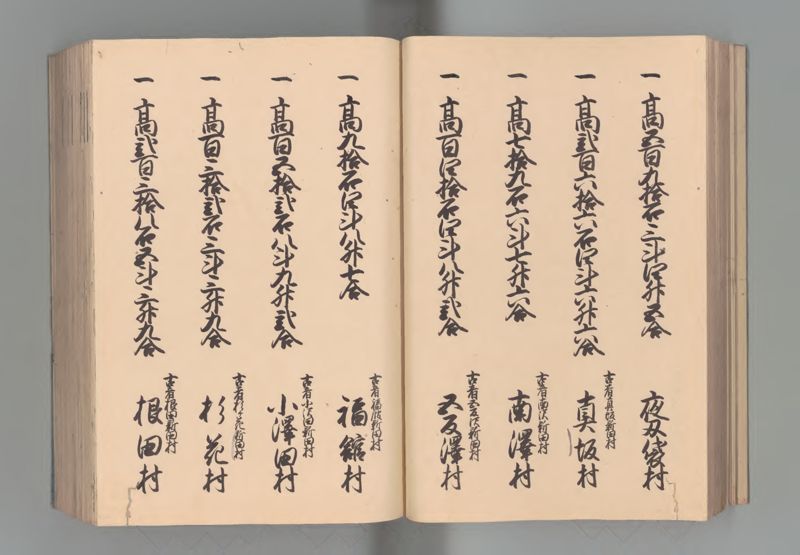 一 高五百九拾石三斗四升五合
夜叉袋村
一 高弐百六拾六石四斗六升六合
古者真坂新田村
真坂村
一 高七拾九石六斗七升六合
古者南沢新田村
南澤村
一 高百四拾石四斗八升弐合
新田村
澤村
一 高九拾石四斗八升七合
古者福館新田村
福館村
一 高百五拾弐石八斗九升弐合
古者小沢田新田村
小澤田村
一 高百三拾弐石三斗三升九合
古者杉花新田村
杉花村
一 高弐百三拾八石五斗三升九合
古者根田新田村
根田村